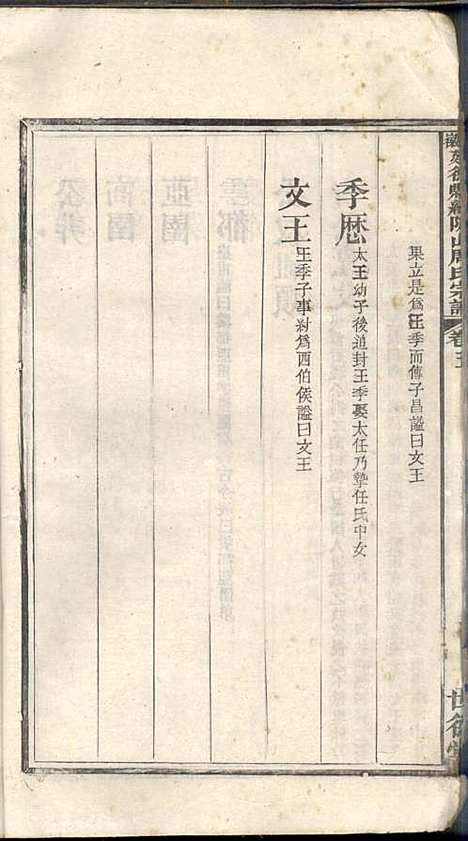 果立是爲王季而傳子昌謚曰文王
季歷
太王幼子後追封王季娶太任乃摯任氏中女
文王
王季子事紂爲西伯侯謚曰文王
周氏宗譜
卷五
世德堂